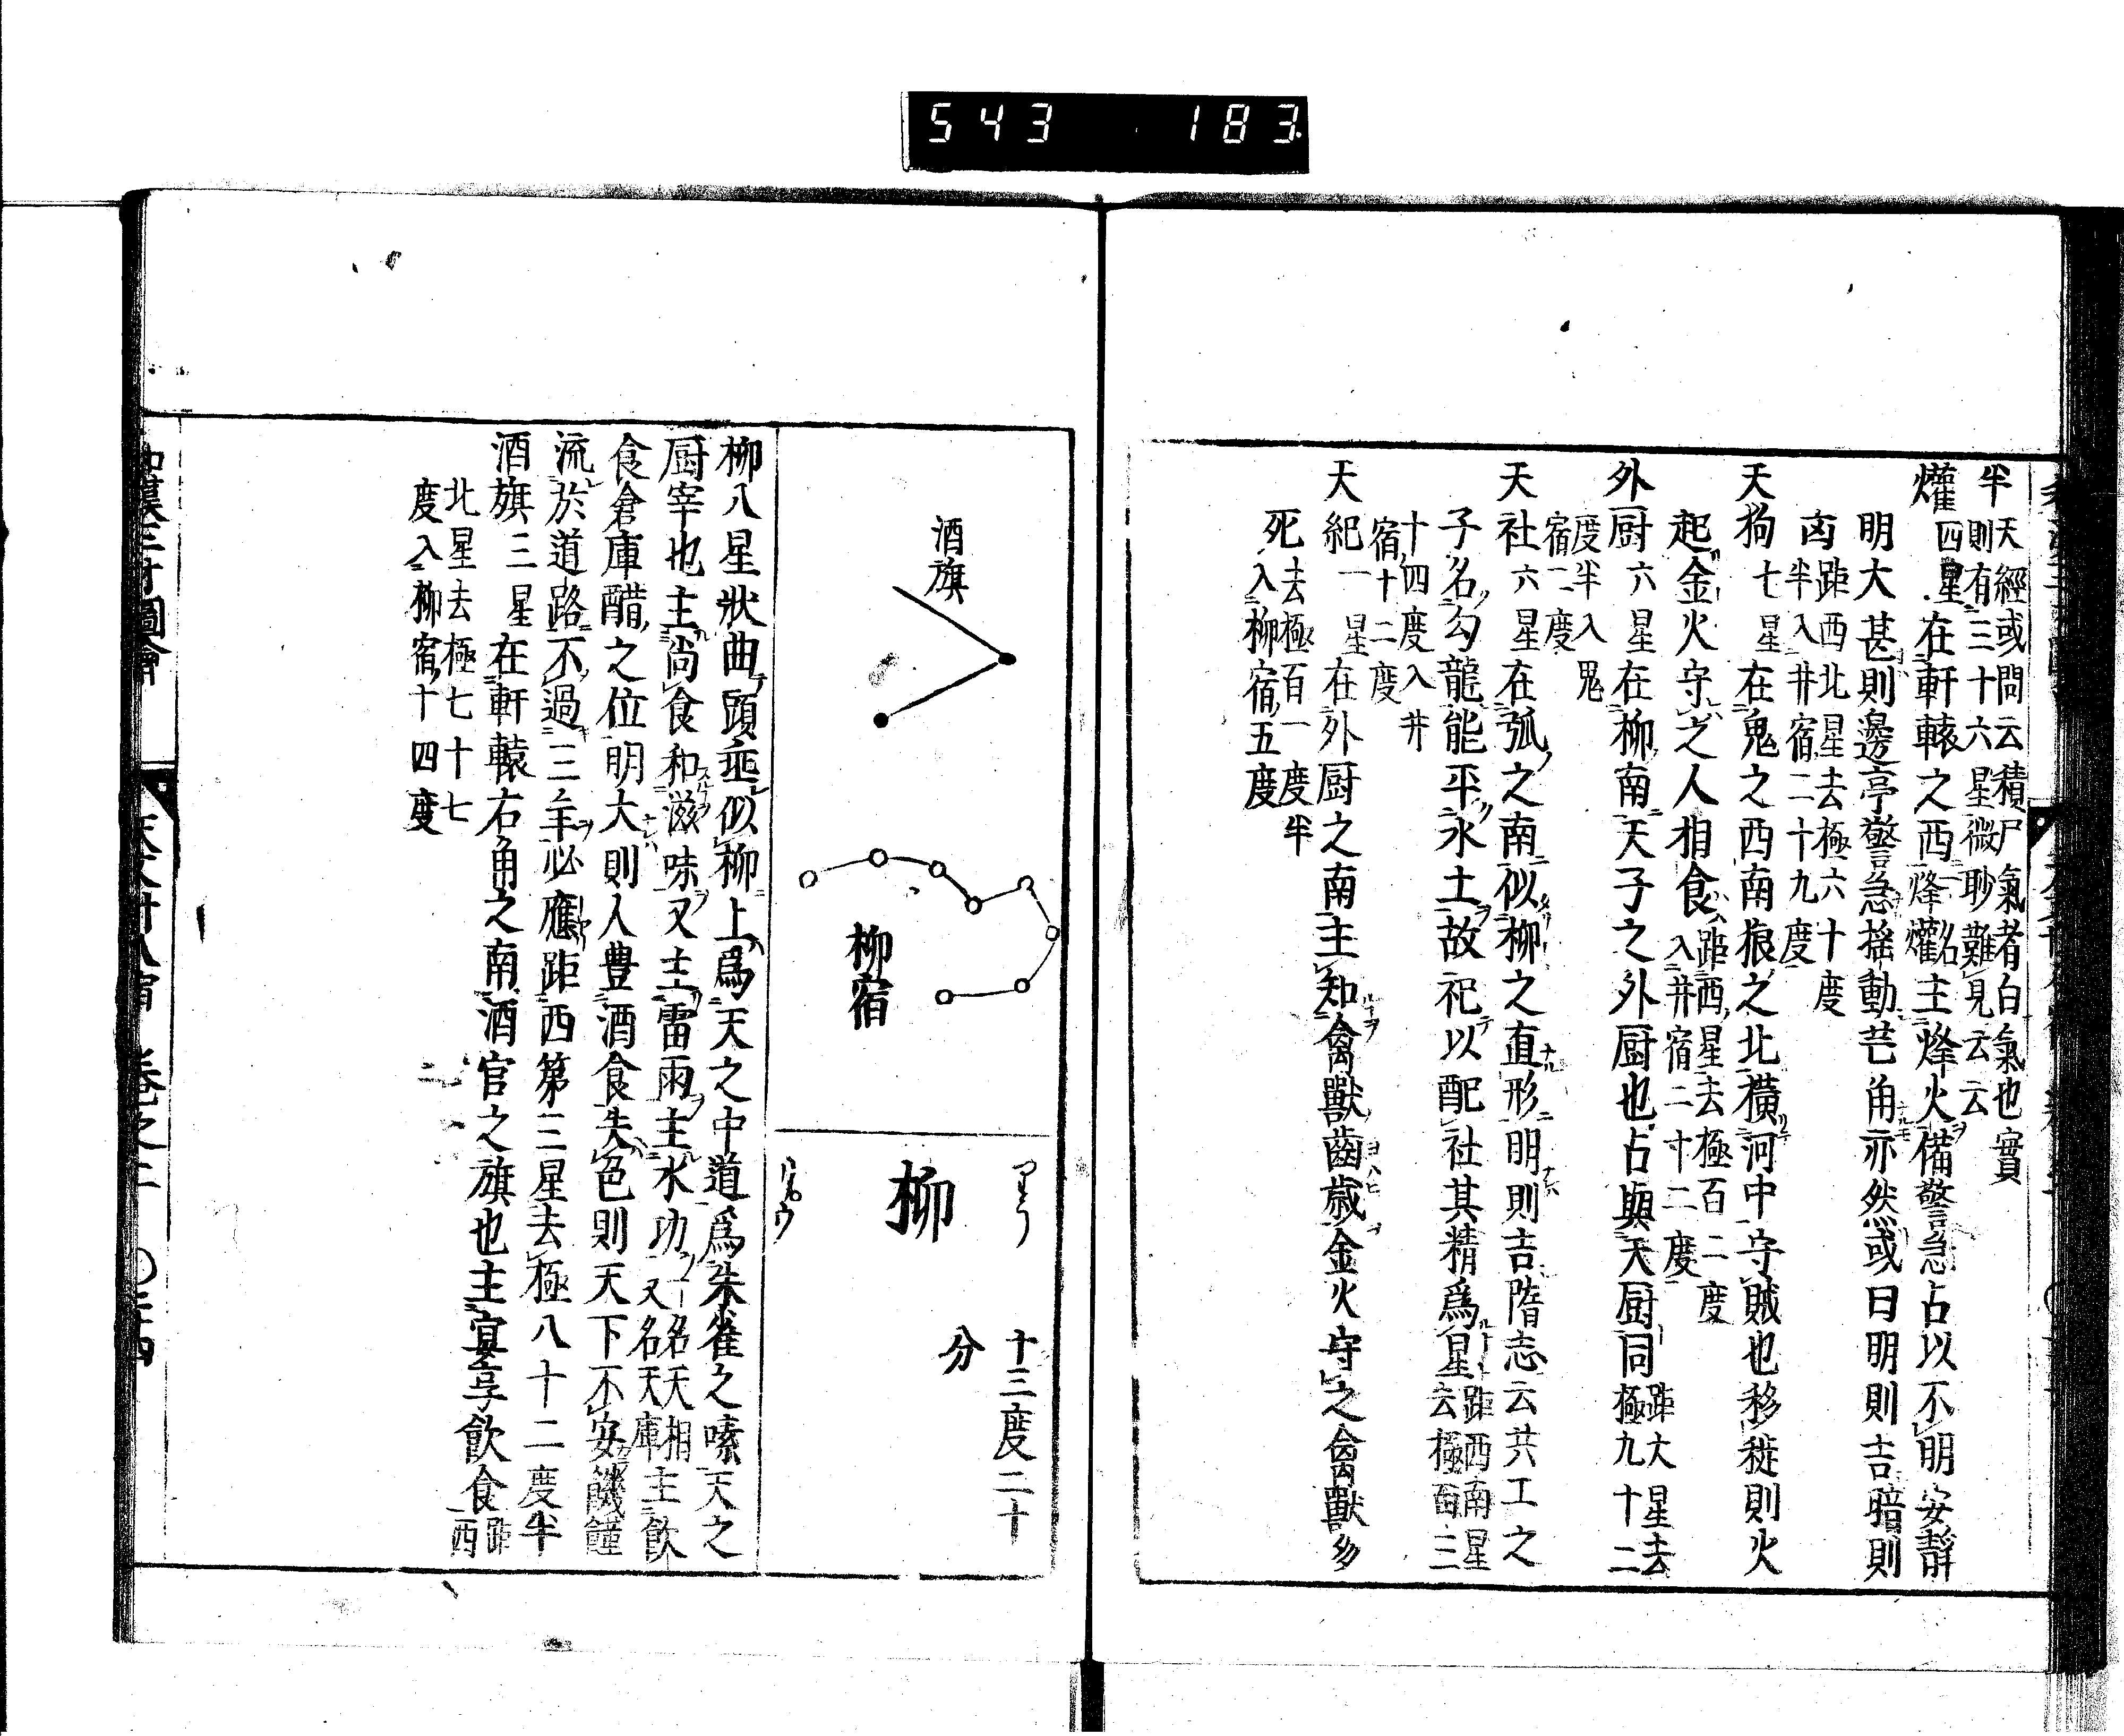 543 183
半天經或問云積尸氣者白氣也實
則有三十六星微眇難見云云
爟四星在軒轅之西烽爟名主烽火備警急占以不明安靜
明大甚則邊亭警急揺動芒角亦然或曰明則吉暗則
凶距西北星去極六十度
半入井宿二十九度
天狗七星在鬼之西南狼之北横河中守賊也移徙則火
起金火守之人相食距西星去極百二度
入井宿二十二度
外厨六星在柳南天子之外厨也占與天厨同距大星去
極九十二
度半入鬼
宿一度
天社六星在弧之南似柳之直形明則吉隋志云共工之
子名勾龍能平水土故祀以配社其精爲星距西南星
去極百三
十四度入井
宿十二度
天紀一星在外厨之南主知禽獸齒歳金火守之禽獸多
死去極百一度半
入柳宿五度
酒旗
柳宿
りう
柳
リウ
十三度二十
分
柳八星狀曲頭垂似柳上爲天之中道爲朱雀之嗉天之
厨宰也主尚食和滋味又主雷雨主水功一名天相
又名天庫主飲
食倉庫醋之位明大則人豊酒食失色則天下不安饑饉
流於道路不過三年必應距西第三星去極八十二度半
酒旗三星在軒轅右角之南酒官之旗也主宴享飲食距
西
北星去極七十七
度入柳宿十四度
和漢三才圖會 天文廿八宿 卷之二 〇三四